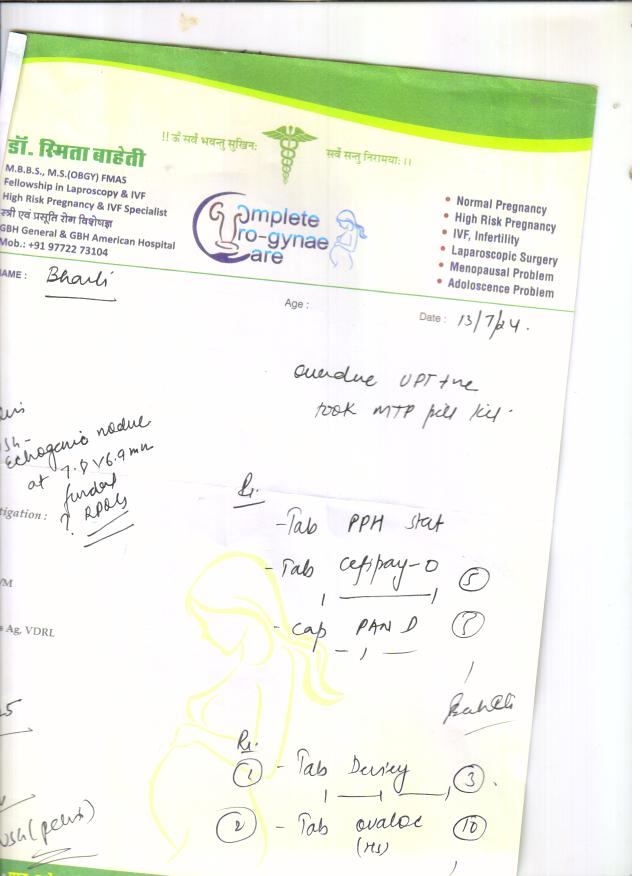 डॉ. स्मिता बाहेती
M.B.B.S., M.S.(OBGY) FMAS
Fellowship in Laproscopy & IVF
High Risk Pregnancy & IVF Specialist
स्त्री एवं प्रसूति रोग विशेषज्ञ
GBH General & GBH American Hospital
Mob.: +91 97722 73104
!! ॐ सर्वे भवन्तु सुखिनः
सर्वे सन्तु निरामयाः !!
Complete
Uro-gynae
Care
• Normal Pregnancy
• High Risk Pregnancy
• IVF, Infertility
• Laparoscopic Surgery
• Menopausal Problem
• Adoloscence Problem
NAME :
Age :
Date : 13/7/24.
overdue UPT +ve
took MTP pill kit.
Echogenic nodue
at 6.9 mm
fundal
? RPOCs
tigation :
/M
s Ag, VDRL
Rx.
- Tab PPH stat
- Tab cefipay-O 5
- cap PAN D
Rx.
1 - Tab 3.
2 - Tab ovaloc 10
(HS)
USG (pelvis)